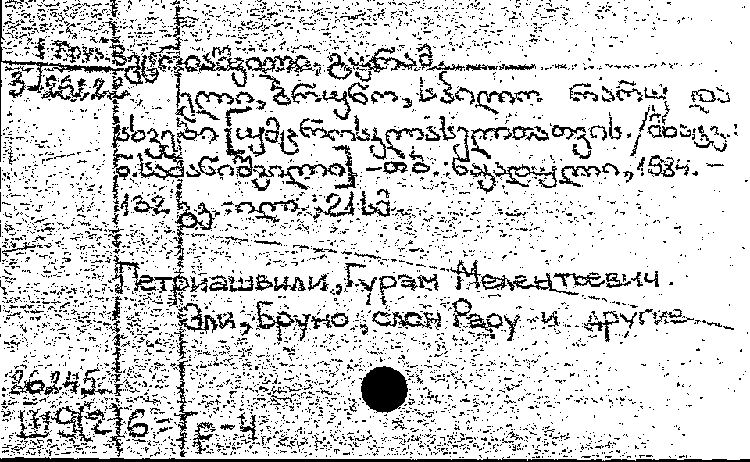 პეტრიაშვილი, გურამ.
ელი, ბრუნო, სპილო რარუ და
სხვები [უმცროსკლასელთათვის. /მხატვ.:
ნ. სამანიშვილი] -თბ.: ნაკადული, 1984. –
132 გვ.: ილ.; 21 სმ
Петриашвили, Гурам Мелентьевич.
Эли, Бруно, слон Рару и другие
26245.
Ш9(2)6=Гр-4